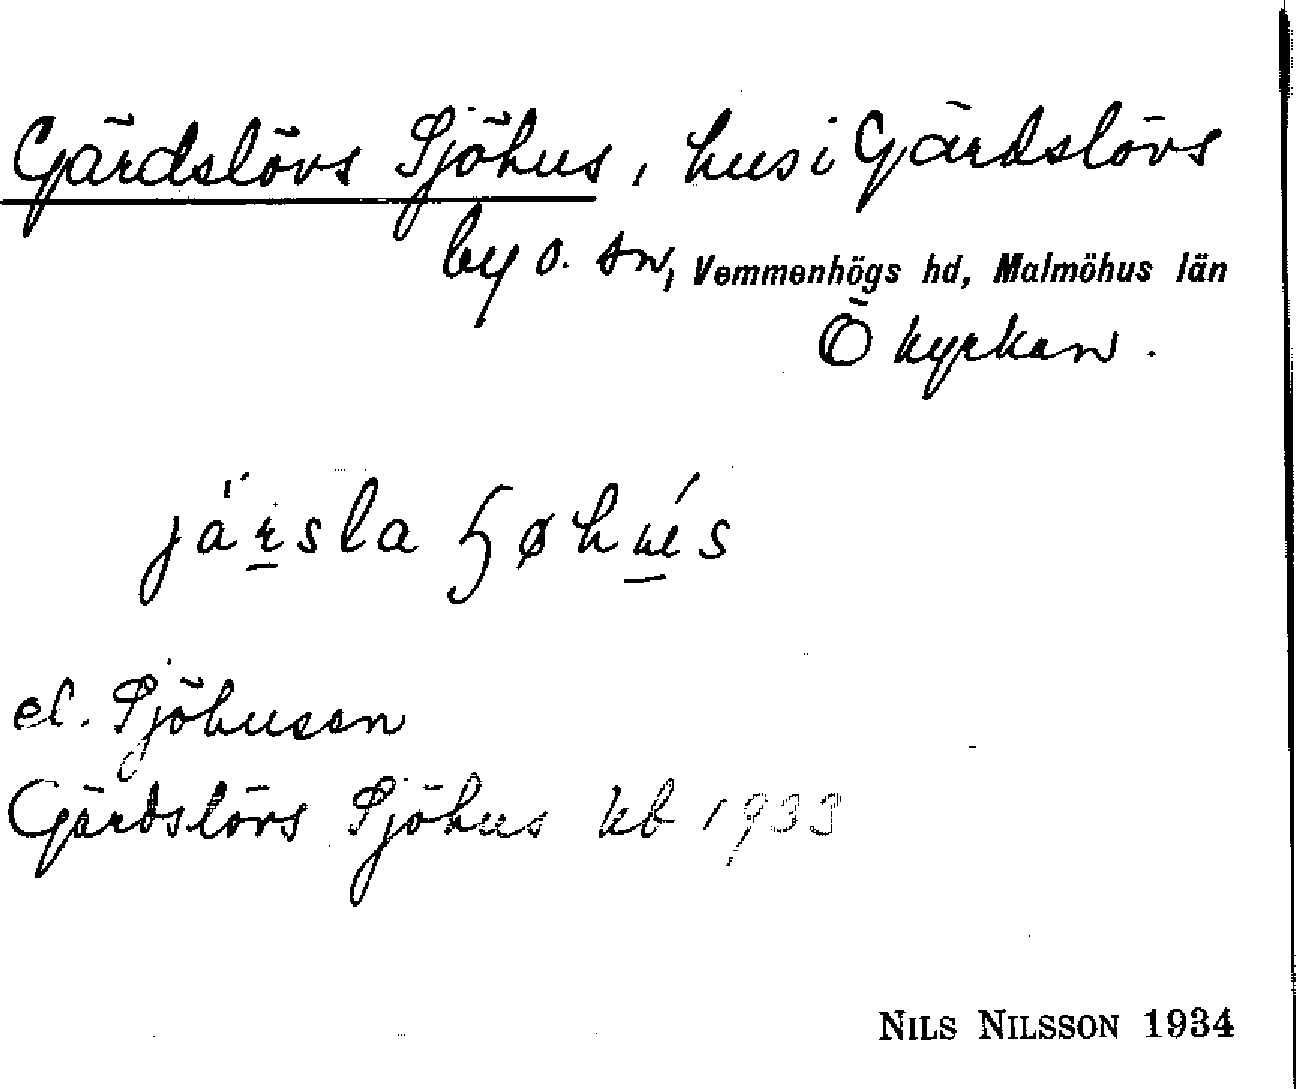 Gärdslövs Sjöhus, hus i Gärdslövs
by o. sn, Vemmenhögs hd, Malmöhus län
Ö kyrkan.
jä́rsla ɧøhúes
el. Sjöhusen
Gärdslövs Sjöhus kb 1933
NILS NILSSON 1934